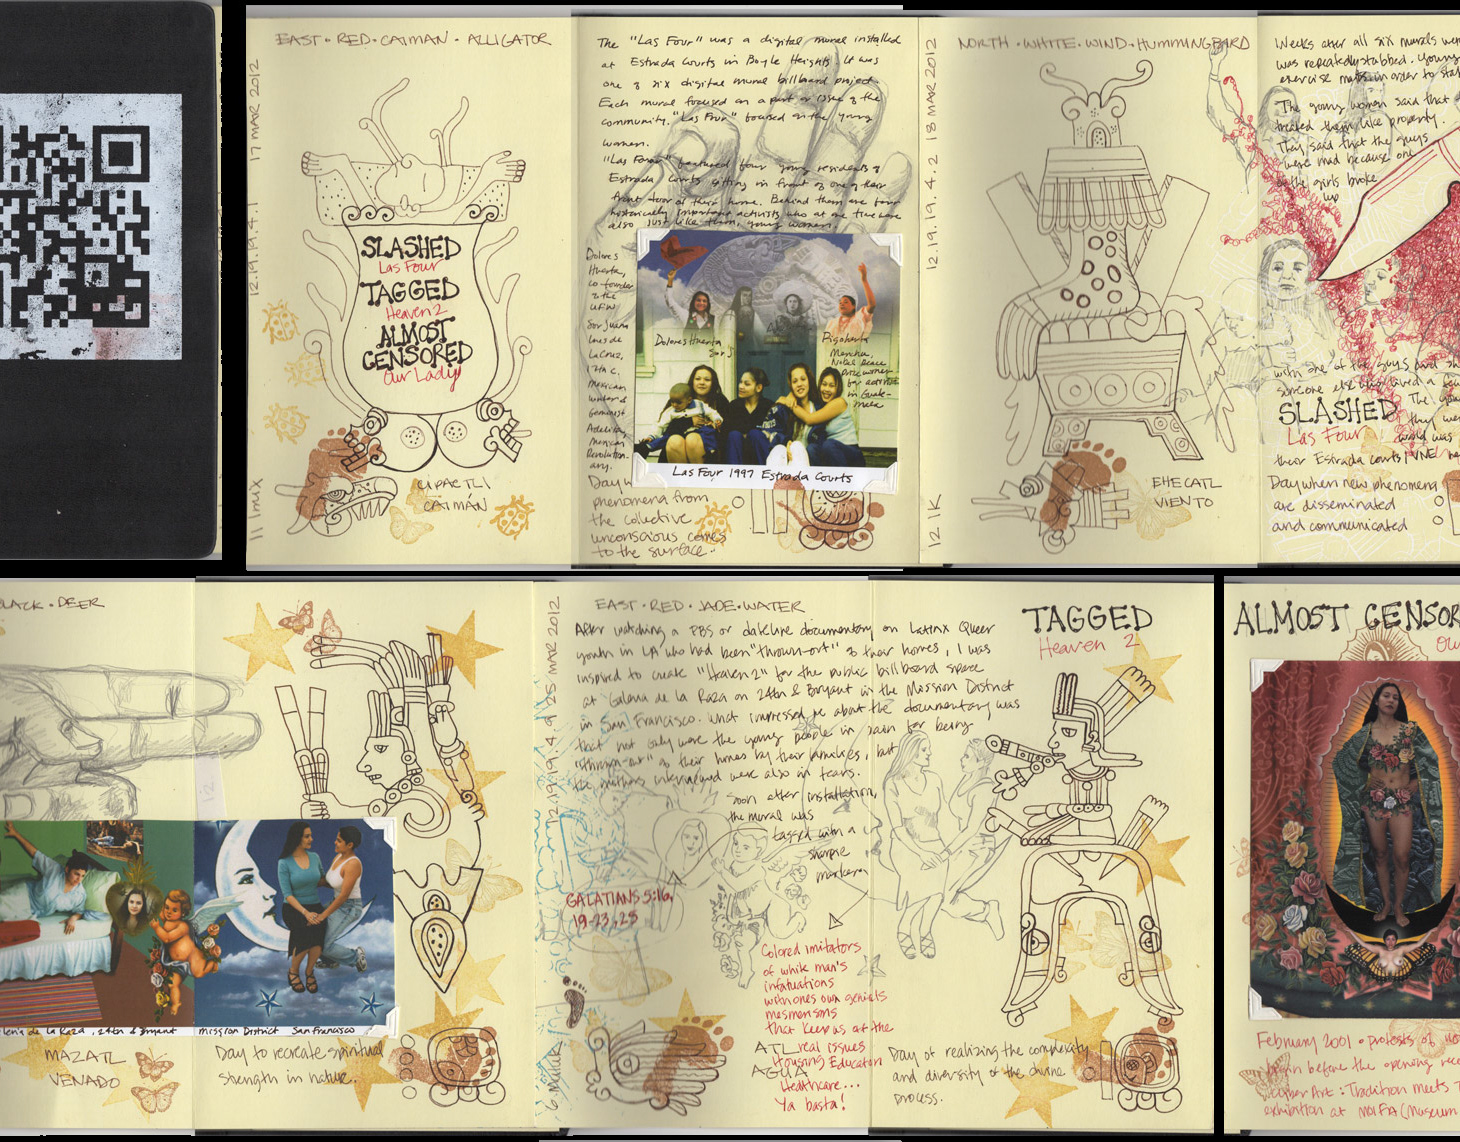 EAST · RED · CAIMAN · ALLIGATOR
17 MAR 2012
12.19.19.4.1
11 Imix
SLASHED
Las Four
TAGGED
Heaven 2
ALMOST
CENSORED
Our Lady
CIPACTLI
CAIMÁN
The "Las Four" was a digital mural installed
at Estrada Courts in Boyle Heights. It was
one of six digital mural billboard project.
Each mural focused on a part or issue of the
community. "Las Four" focused on the young
women.
"Las Four" featured four young residents of
Estrada Courts sitting in front of one of their
front door of their home. Behind them are four
historically important activists who at one time were
also just like them, young women
Dolores
Huerta,
co-founder
of the
UFW
Sor Juana
Ines de
La Cruz,
17th c.
Mexican
writer &
feminist
Adelita,
Mexican
Revolution-
ary.
Dolores Huerta
Sor J
Rigoberta
Menchu,
Nobel Peace
Prize winner
for activism
in Guate-
mala
Las Four 1997 Estrada Courts
Day w
phenomena from
the collective
unconscious comes
to the surface..
18 MAR 2012
12.19.19.4.2
12 IK
NORTH · WHITE · WIND · HUMMINGBIRD
EHECATL
VIENTO
Weeks after all six murals we
was repeatedly stabbed. young
exercise mats in order to sta
The young women said that
treated them like property.
They said that the guys
were mad because one
of the girls broke
up
with one of the guys and
someone else who lived a
SLASHED The
Las Four
their Estrada courts
Day when new phenomena
are disseminated
and communicated
LACK · DEER
lería de La Raza, 24th & Bryant Mission District San Francisco
MAZATL
VENADO
Day to recreate spiritual
strength in nature.
25 MAR 2012
12.19.19.4.9
6 Muluk
EAST · RED · JADE · WATER
After watching a PBS or dateline documentary on Latinx Queer
youth in LA who had been "thrown-out" of their homes, I was
inspired to create "Heaven 2" for the public billboard space
at Galeria de la Raza on 24th & Bryant in the Mission District
in San Francisco. What impressed me about the documentary was
that not only were the young people in pain for being
"thrown-out" of their homes by their families, but
the mothers interviewed were also in tears.
Soon after installation,
the mural was
tagged with a
sharpie
marker.
GALATIANS 5:16,
19-23, 25
Colored imitators
of white man's
infatuations
with ones own genitals
mesmersons
that keep us at the
ATL real issues
Housing Education
AGUA
Healthcare...
Ya basta!
TAGGED
Heaven 2
Day of realizing the complexity
and diversity of the divine
process.
ALMOST CENSOR
Ou
February 2001 · protests of
begin before the opening rec
Cyber Art: Tradition meets T
exhibition at MOIFA (Museum